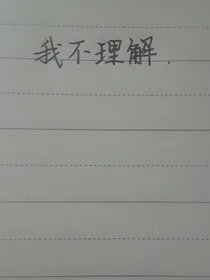 我不理解.